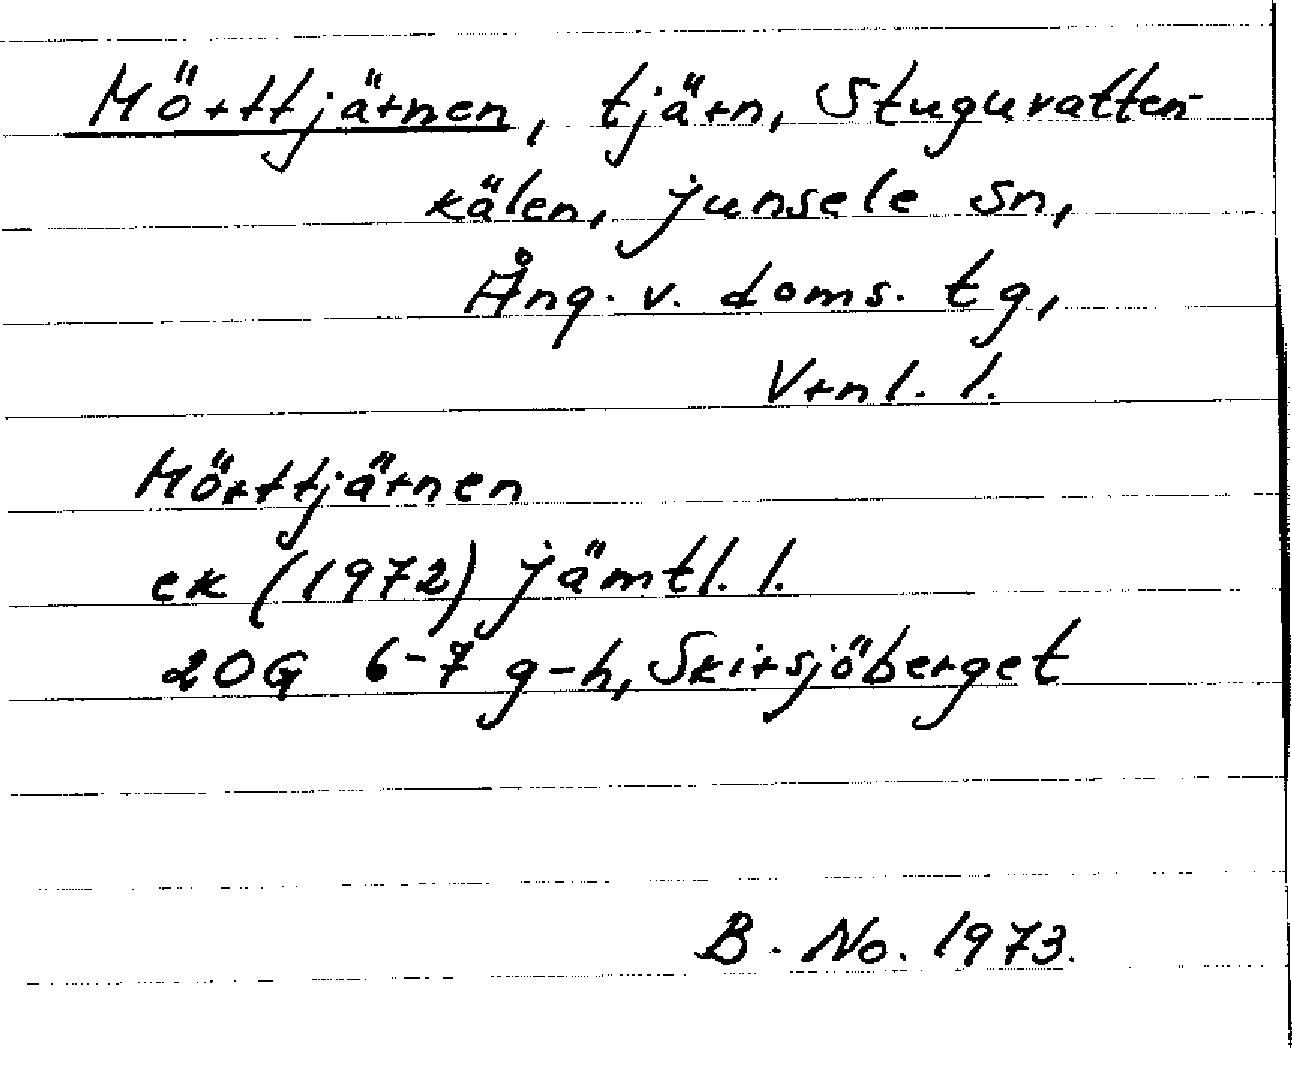 Mörttjärnen, tjärn, Stuguvatten-
kälen, Junsele sn,
Ång. v. doms. tg,
Vrnl. l.
Mörttjärnen
ek (1972) Jämtl. l.
20G 6-7 g-h, Skirsjöberget
B. No. 1973.